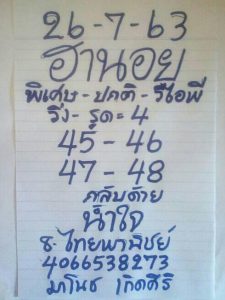 26-7-63
ฮานอย
พิเศษ - ปกติ - วีไอพี
วิ่ง - รูด = 4
45 - 46
47 - 48
กลับด้วย
น้ำใจ
ธ.ไทยพาณิชย์
4066538273
มาโนช เกิดศิริ